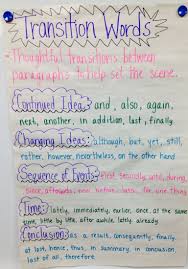 Transition Words
Thoughtful transitions between
paragraphs to help set the scene.
Continued Ideas: and, also, again,
next, another, in addition, last, finally.
Changing Ideas: although, but, yet, still,
rather, however, nevertheless, on the other hand
Sequence of Events: first, secondly, until, during,
since, afterwards, now, before, last, for one thing
Time: lately, immediately, earlier, once, at the same
time, little by little, after awhile, lately, already
Conclusion: as a result, consequently, finally,
at last, hence, thus, in summary, in conclusion,
last of all, therefore.